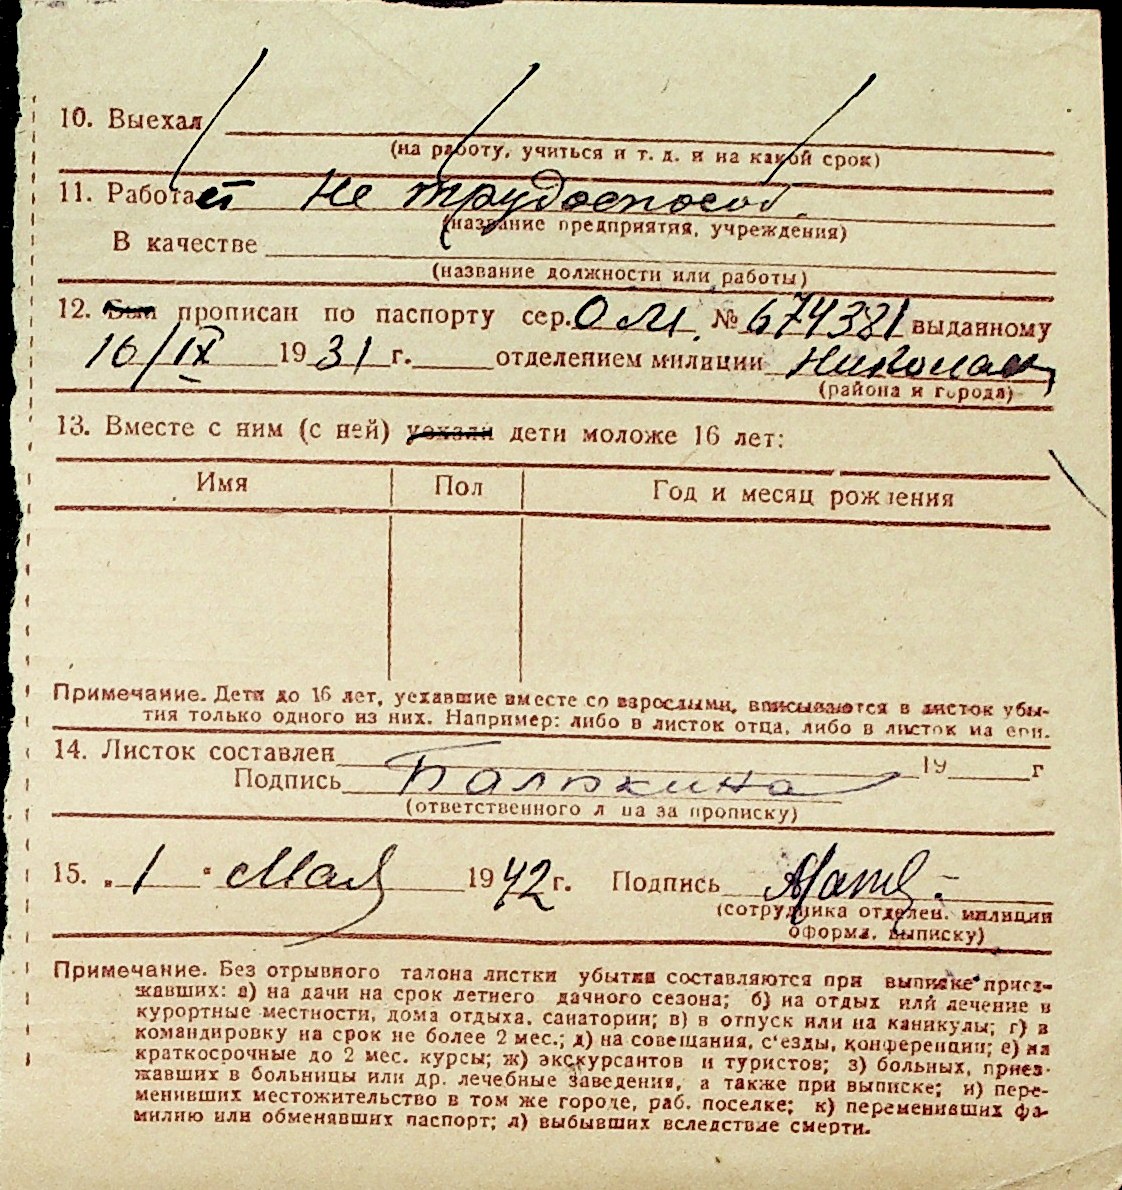 10. Выехал
(на работу, учиться и т. д. и на какой срок)
11. Работает Не трудоспособ.
(название предприятия, учреждения)
В качестве
(название должности или работы)
12. Был прописан по паспорту сер. ОМ. № 674381 выданному
16/IX 1931 г. отделением милиции
(района и города)
13. Вместе с ним (с ней) уехали дети моложе 16 лет:
Имя Пол Год и месяц рождения
Примечание. Дети до 16 лет, уехавшие вместе со взрослыми, вписываются в листок убы-
тия только одного из них. Например: либо в листок отца, либо в листок матери.
14. Листок составлен 19 г
Подпись
(ответственного лица за прописку)
15. „ 1 " Мая 1942 г. Подпись
(сотрудника отделен. милиции
оформл. выписку)
Примечание. Без отрывного талона листки убытия составляются при выписке приез-
жавших: а) на дачи на срок летнего дачного сезона; б) на отдых или лечение в
курортные местности, дома отдыха, санатории; в) в отпуск или на каникулы; г) в
командировку на срок не более 2 мес.; д) на совещания, с'езды, конференции; е) на
краткосрочные до 2 мес. курсы; ж) экскурсантов и туристов; з) больных, приез-
жавших в больницы или др. лечебные заведения, а также при выписке; и) пере-
менивших местожительство в том же городе, раб. поселке; к) переменивших фа-
милию или обменявших паспорт; л) выбывших вследствие смерти.